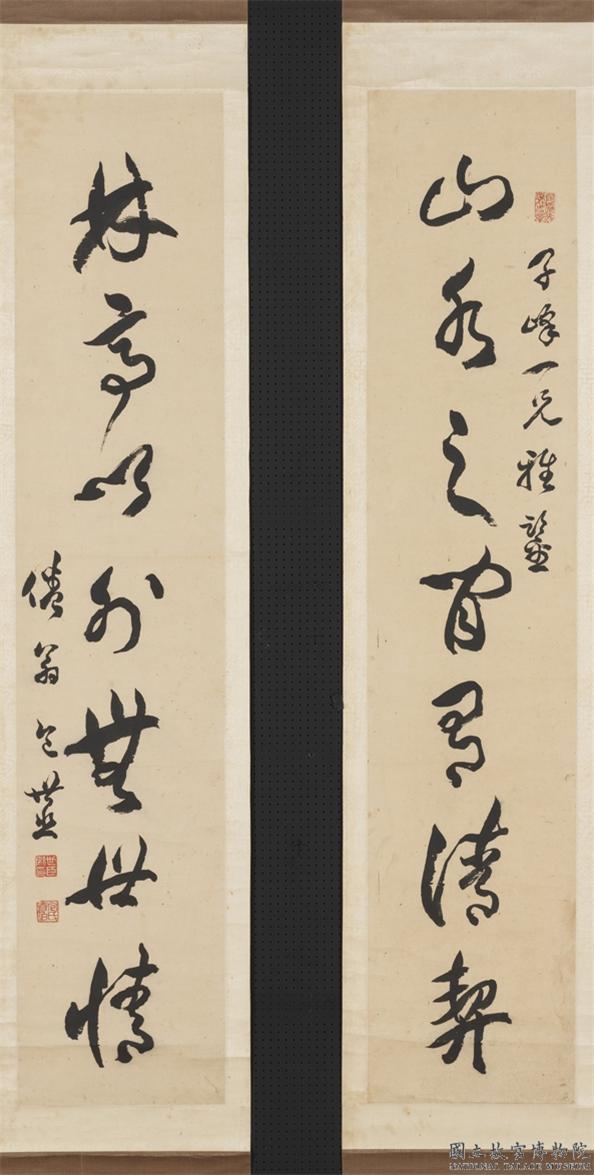 子峰一兄雅鑒
山水之間有清契
林亭以外無世情
倦翁包世臣
國立故宮博物院
NATIONAL PALACE MUSEUM